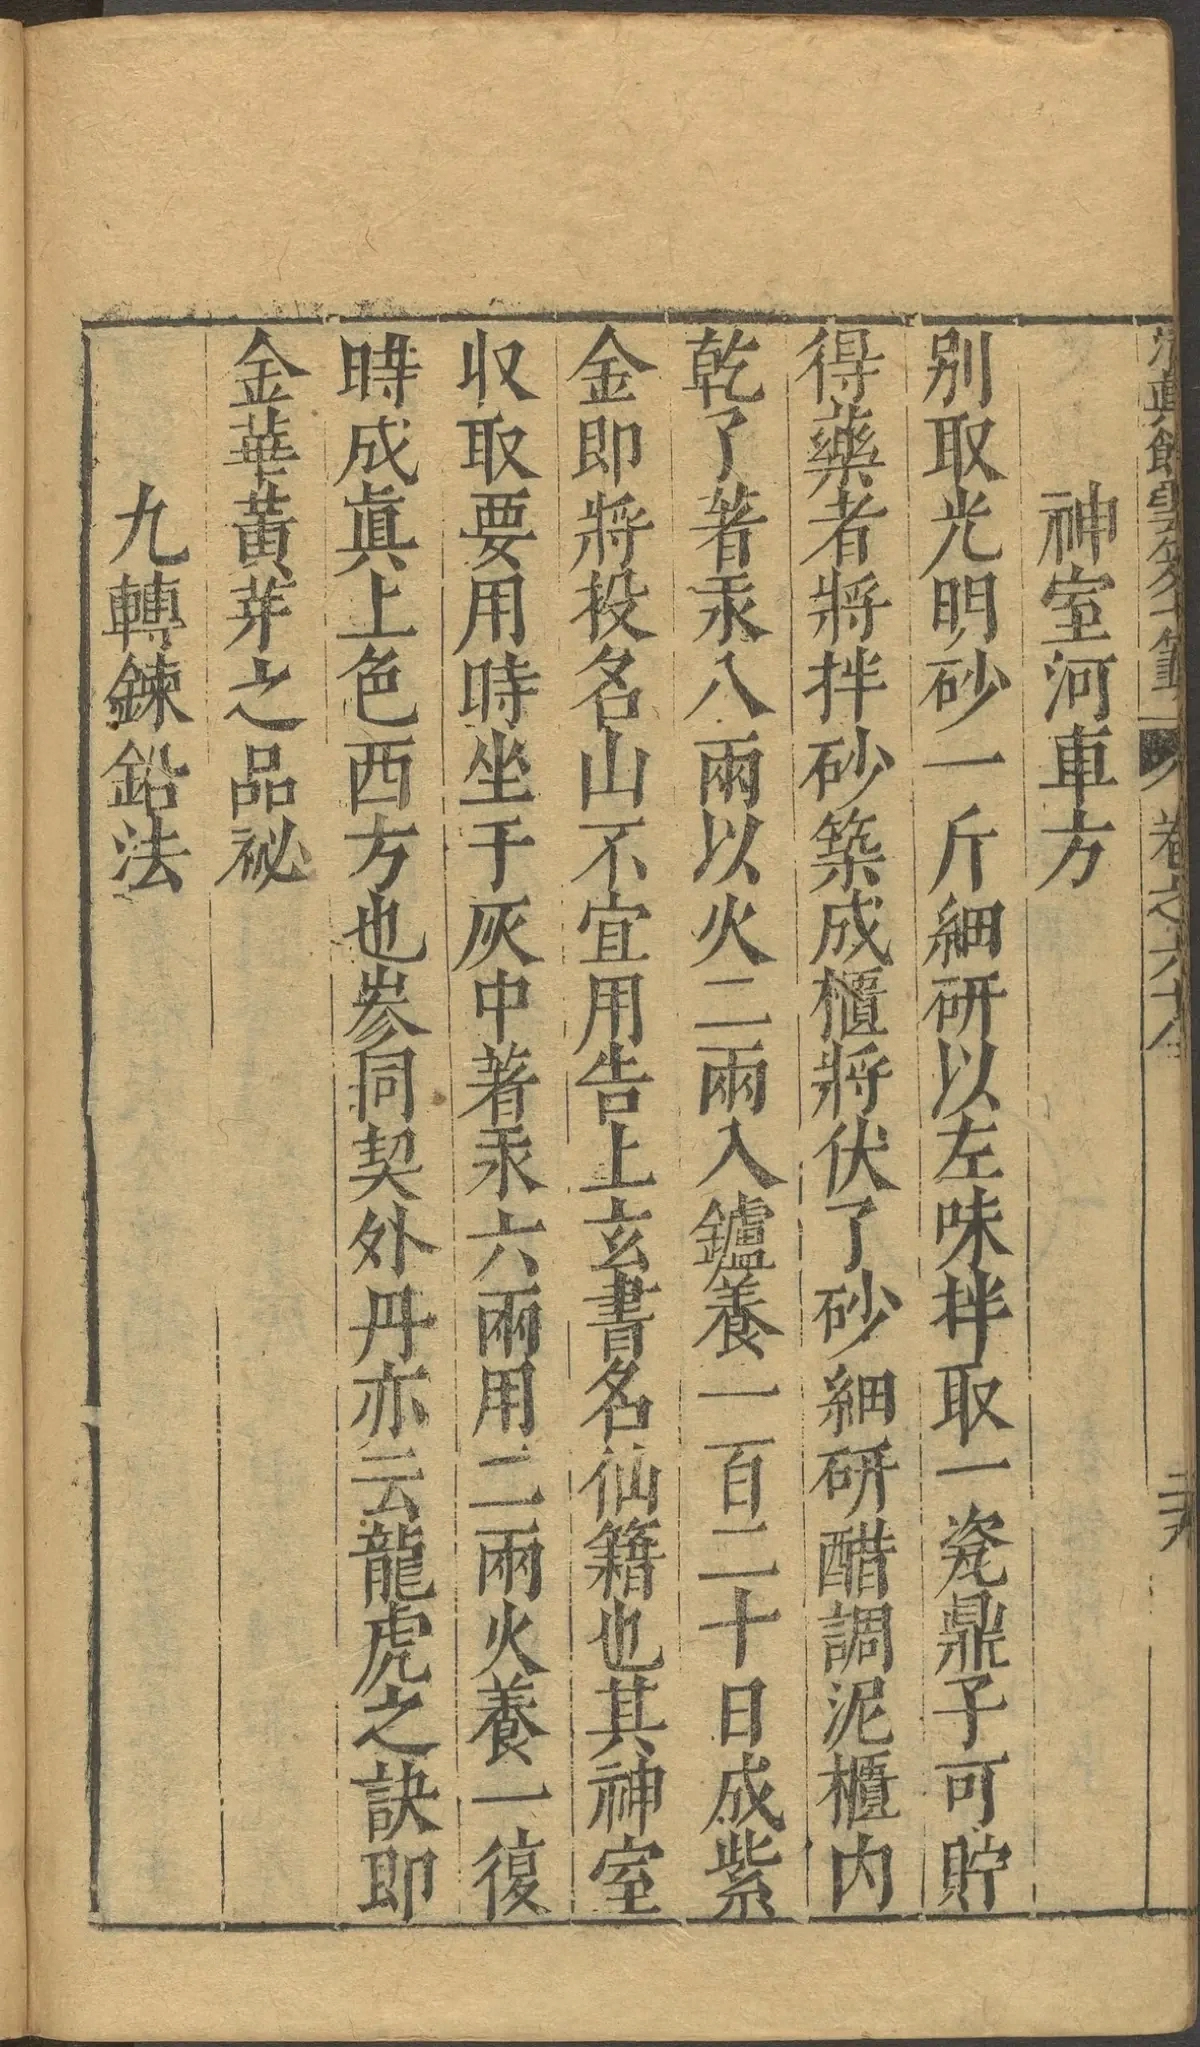 清眞館雲笈七籤 卷之六十八 二十八
神室河車方
别取光明砂一斤細研以左味拌取一瓷鼎子可貯
得藥者將拌砂築成櫃將伏了砂細研醋調泥櫃内
乾了著汞八兩以火二兩入鑪養一百二十日成紫
金即將投名山不宜用告上玄書名仙籍也其神室
収取要用時坐于灰中著汞六兩用二兩火養一復
時成眞上色西方也叅同契外丹亦云龍虎之訣即
金華黃芽之品祕
九轉鍊鉛法